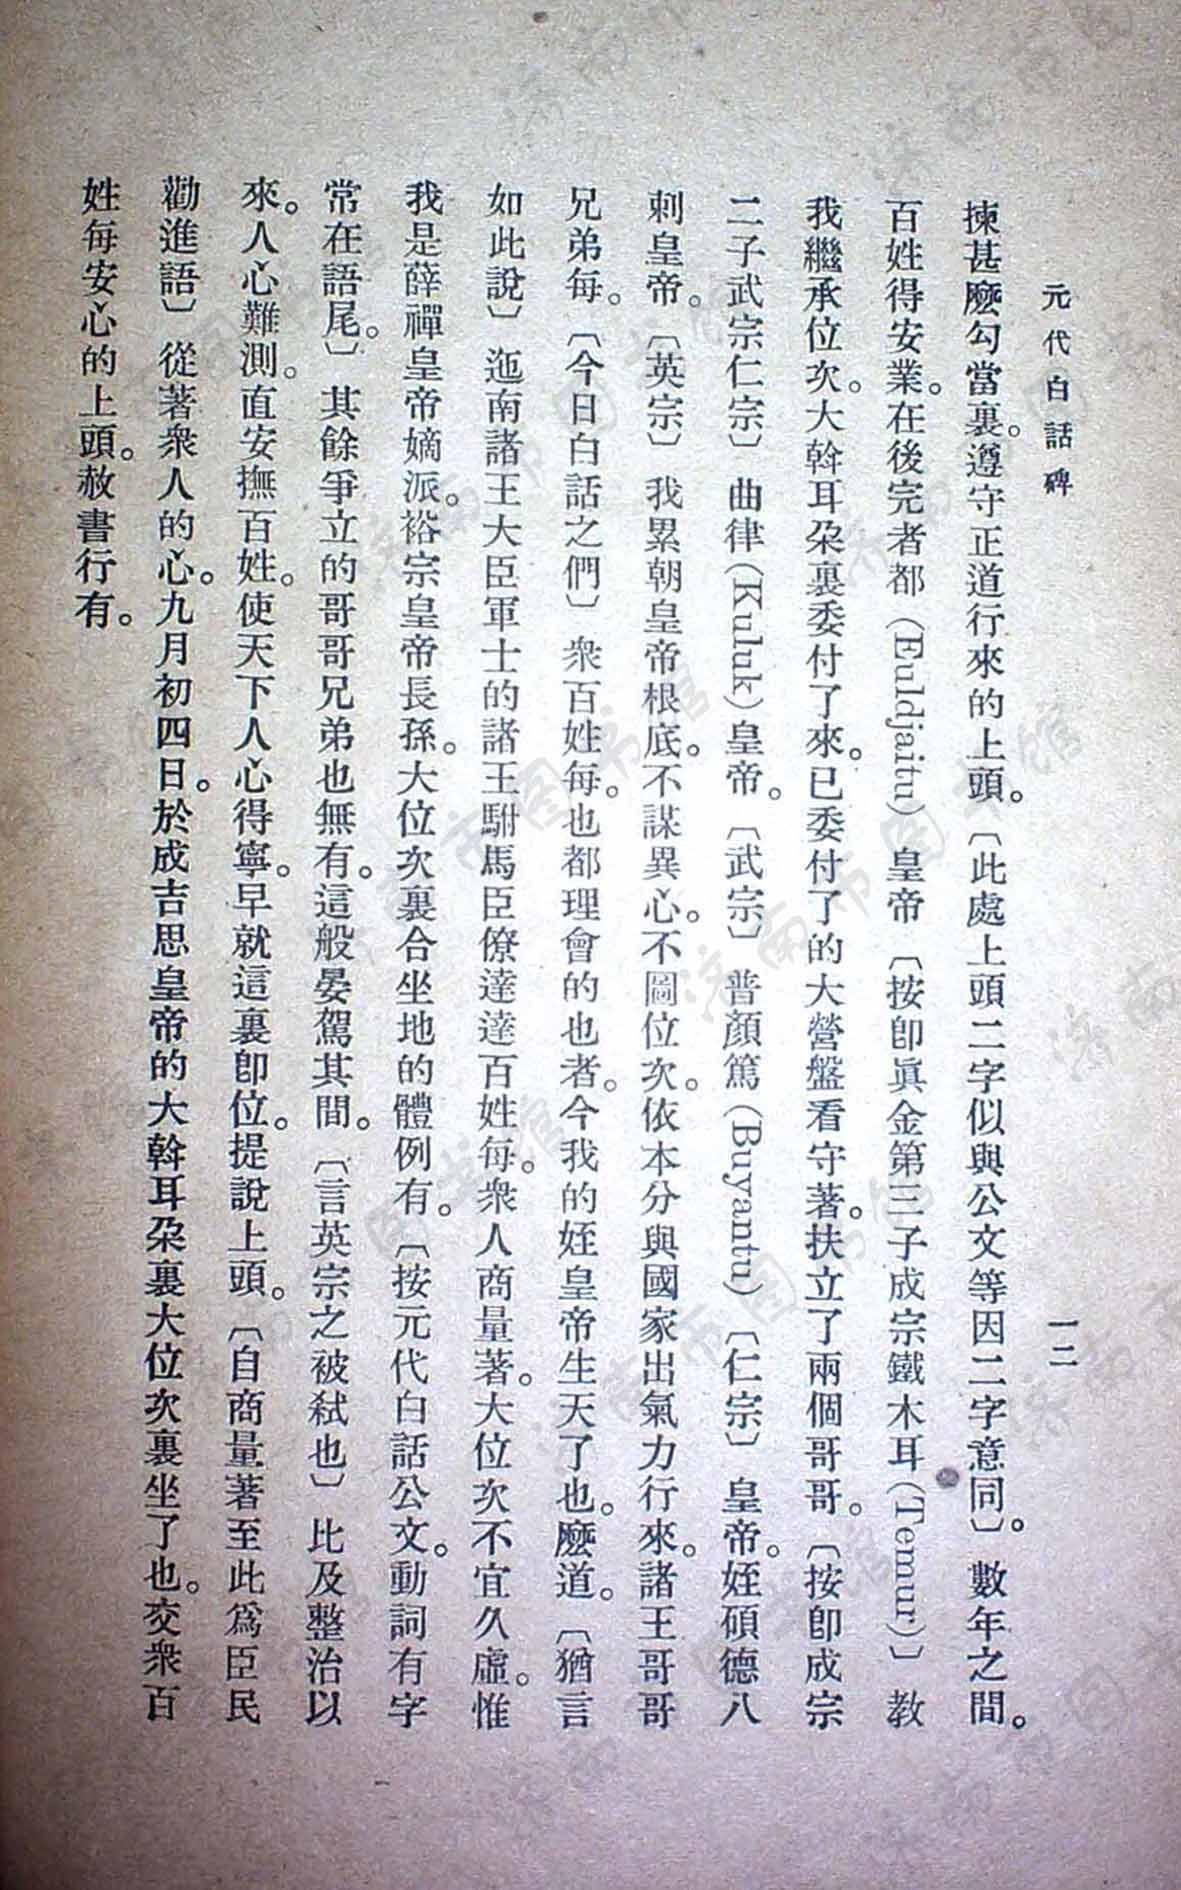 元代白話碑
一二
揀甚麼勾當裏。遵守正道行來的上頭。〔此處上頭二字似與公文等因二字意同。〕數年之間。
百姓得安業。在後完者都(Euldjaitu)皇帝〔按卽眞金第三子成宗鐵木耳(Temur)〕教
我繼承位次。大斡耳朶裏委付了來。已委付了的大營盤看守著。扶立了兩個哥哥。〔按卽成宗
二子武宗仁宗〕曲律(Kuluk)皇帝。〔武宗〕普顏篤(Buyantu)〔仁宗〕皇帝。姪碩德八
剌皇帝。〔英宗〕我累朝皇帝根底。不謀異心。不圖位次。依本分與國家出氣力行來。諸王哥哥
兄弟每。〔今日白話之們〕衆百姓每。也都理會的也者。今我的姪皇帝生天了也。麼道。〔猶言
如此說〕迤南諸王大臣軍士的諸王駙馬臣僚達達百姓每。衆人商量著。大位次不宜久虛。惟
我是薛禪皇帝嫡派。裕宗皇帝長孫。大位次裏合坐地的體例有。〔按元代白話公文。動詞有字
常在語尾。〕其餘爭立的哥哥兄弟也無有。這般晏駕其間。〔言英宗之被弒也〕比及整治以
來。人心難測。直安撫百姓。使天下人心得寧。早就這裏卽位。提說上頭。〔自商量著至此爲臣民
勸進語〕從著衆人的心。九月初四日。於成吉思皇帝的大斡耳朶裏大位次裏坐了也。交衆百
姓每安心的上頭。赦書行有。
濟南市图书馆